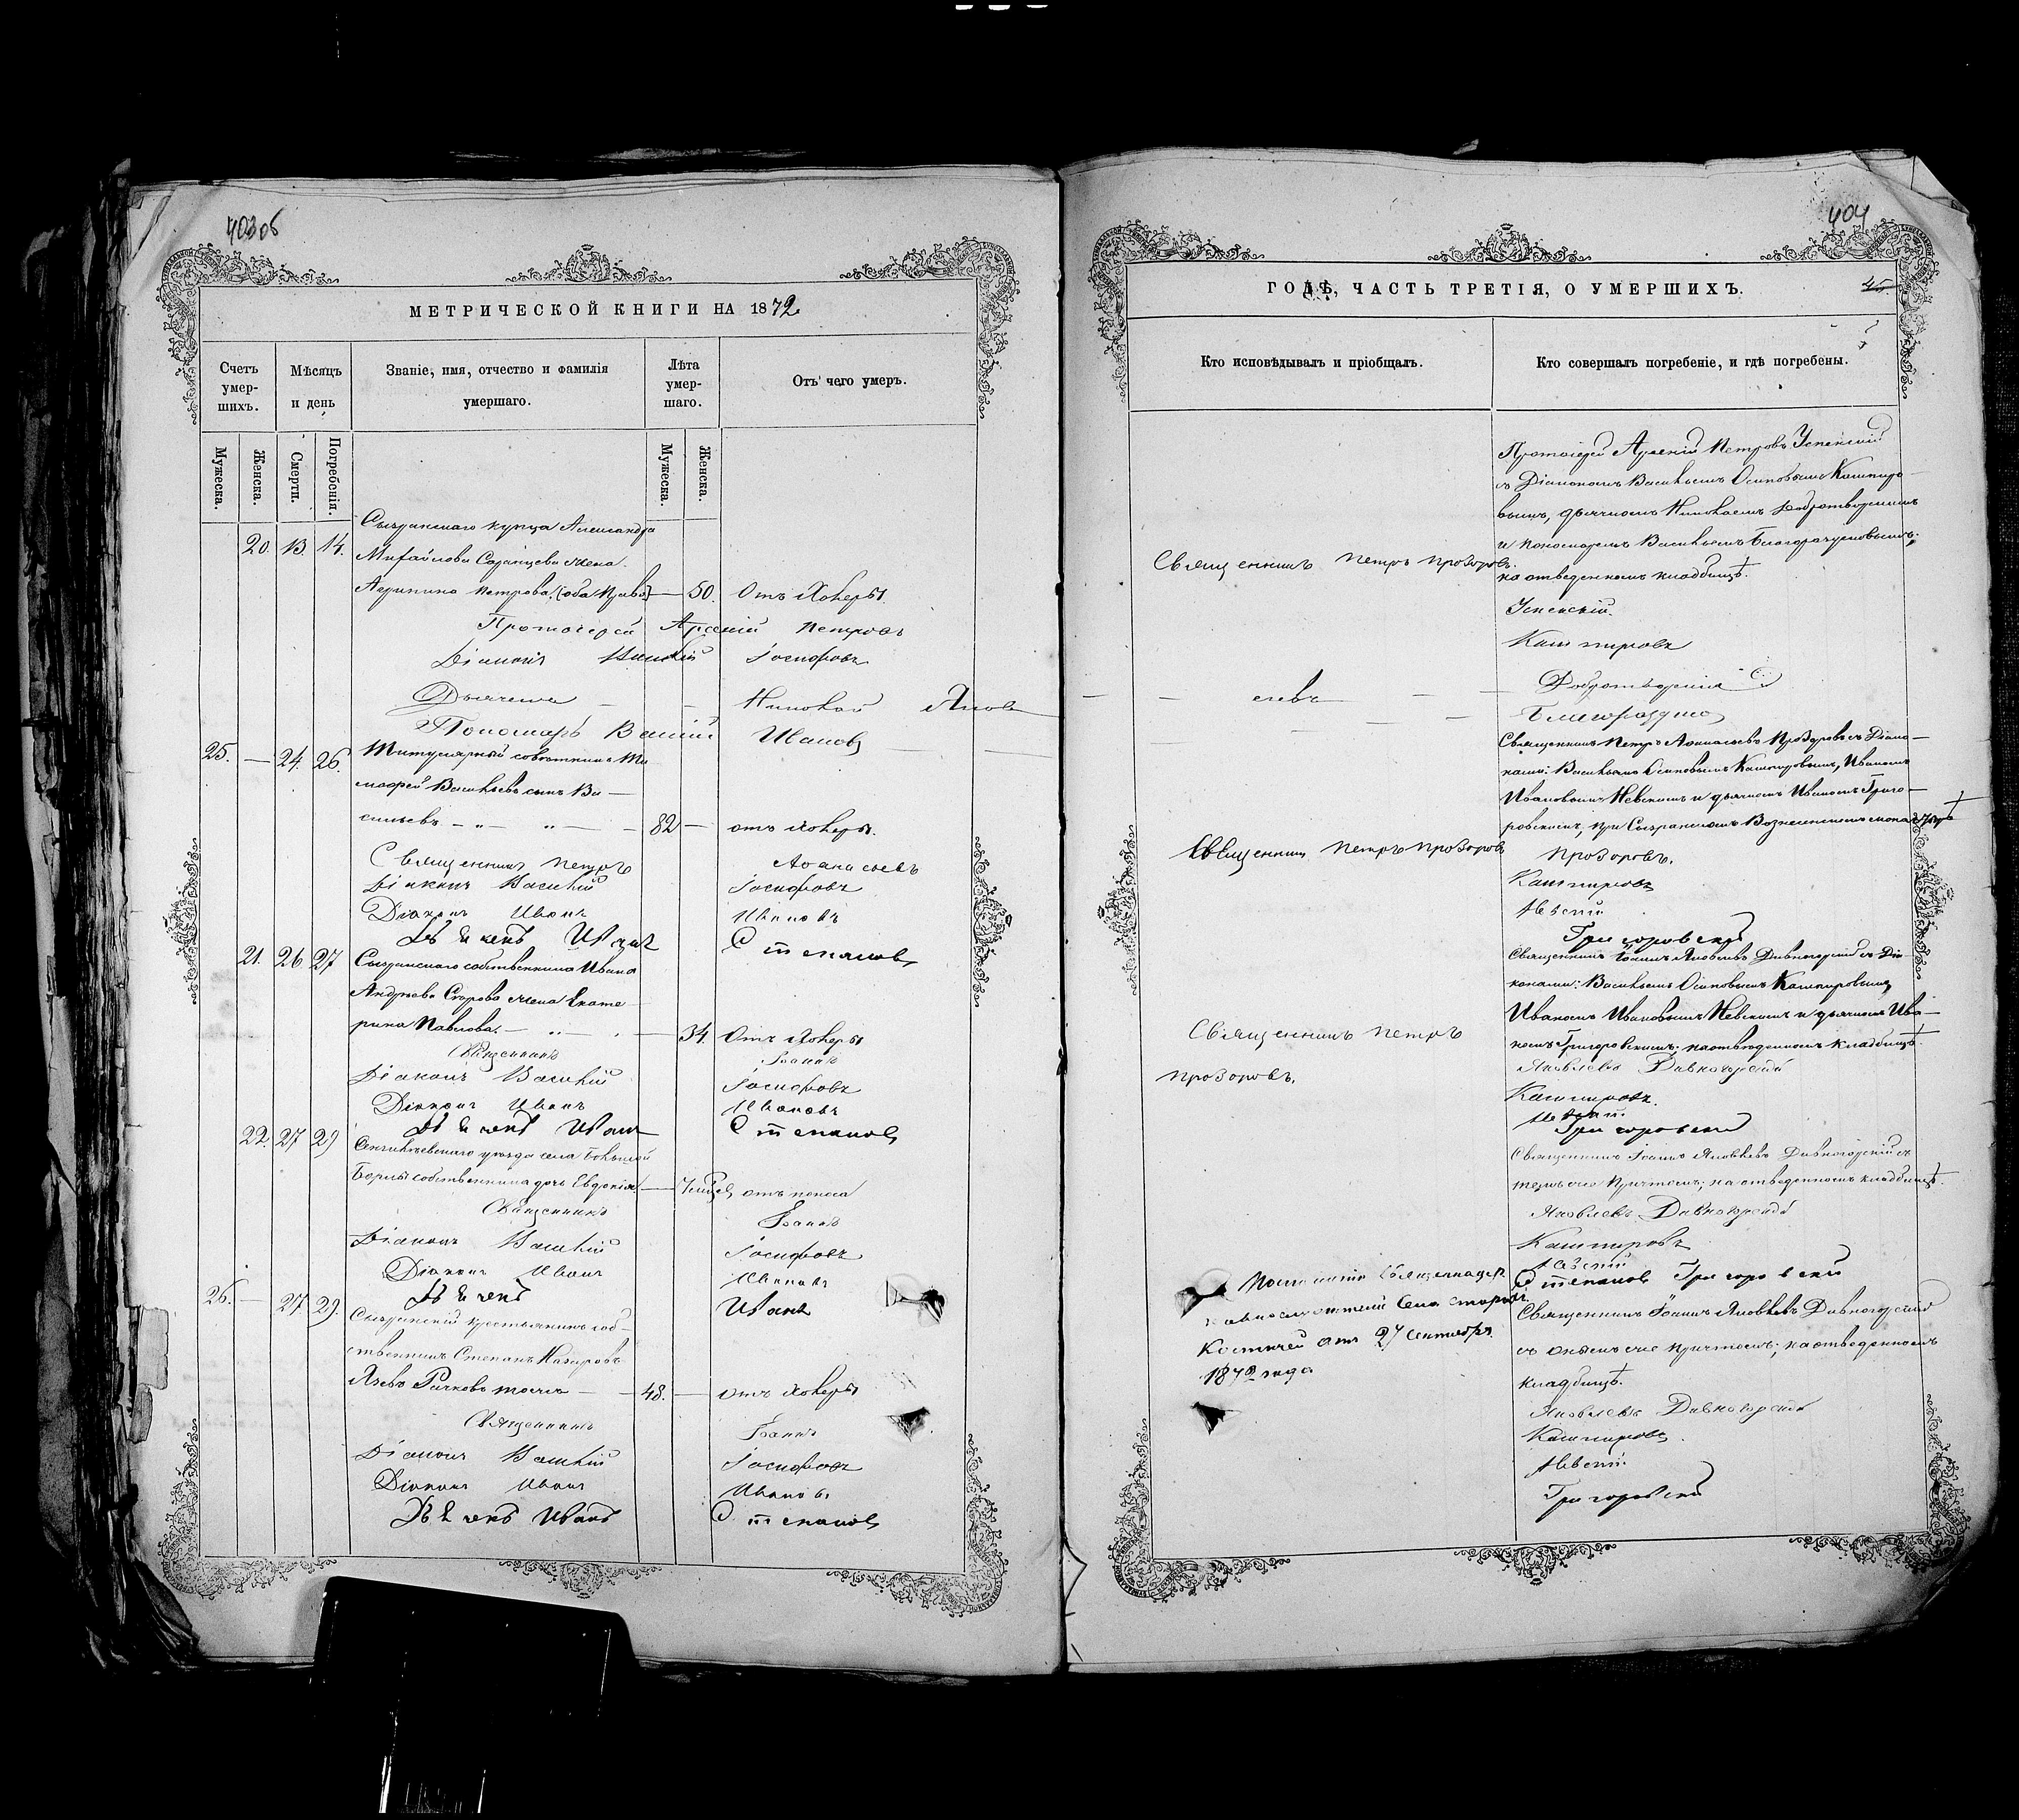 403об
МЕТРИЧЕСКОЙ КНИГИ НА 1872
Счетъ умер-шихъ.
Мѣсяцъ и день
Званіе, имя, отчество и фамилія умершаго.
Лѣта умер-шаго.
Отъ чего умеръ.
Мужеска.
Женска.
Смерти.
Погребенія.
Мужеска.
Женска.
Сызранскаго купца Александра
20. 13. 14. Михайлова Саранцева жена
Агрипина Петрова — 50. Отъ холеры.
Протоіерей Арсеній Петровъ
Діаконъ Василій Іосифовъ
Дьячекъ Николай Яков
Пономарь Василій Иванов
25. — 24. 26. Титулярный совѣтникъ Ти
мофей Васильевъ сынъ Ва—
сильевъ — 82 — отъ холеры.
Священникъ Петръ Аѳанасьевъ
Діаконъ Василій Іосифовъ
Діаконъ Иванъ Ивановъ
Дьячекъ Иванъ Степановъ
21. 26 27 Сызранскаго собственника Ивана
Андреева Егорова жена Екате—
рина Павлова. — 34. Отъ холеры
Священникъ Іоаннъ
Діаконъ Василій Іосифовъ
Діаконъ Иванъ Ивановъ
Дьячекъ Иванъ Степановъ
22. 27 29 Сенгилѣевскаго уѣзда села Большой
Борлы собственника дочь Евдокія — отъ поноса
Священникъ Іоаннъ
Діаконъ Василій Іосифовъ
Діаконъ Иванъ Ивановъ
Дьячекъ Иванъ
26. — 27 29. Сызранскій крестьянинъ соб—
ственникъ Степанъ
— 48. — отъ холеры
Священникъ Іоаннъ
Діаконъ Василій Іосифовъ
Діаконъ Иванъ Ивановъ
Дьячекъ Иванъ Степановъ
404
ГОДѢ, ЧАСТЬ ТРЕТІЯ, О УМЕРШИХЪ.
45.
Кто исповѣдывалъ и пріобщалъ.
Кто совершалъ погребеніе, и гдѣ погребены.
Протоіерей Арсеній Петровъ Успенскій
съ Діакономъ Васильемъ Осиповымъ Кашпиро—
вымъ, дьячкомъ Николаемъ Добротворскимъ
и Пономаремъ Васильемъ Благоразумовымъ,
Священникъ Петръ Прозоровъ.
на отведенномъ кладбищѣ.
Успенскій.
Кашпировъ
левъ Добротворскій
Священникъ Петръ Аѳанасьевъ Прозоровъ съ Діако—
нами: Васильемъ Осиповымъ Кашпировымъ, Иваномъ
Ивановымъ Невскимъ и дьячкомъ Иваномъ Григо—
ровскимъ, при Сызранскомъ Вознесенскомъ монастырѣ
Священникъ Петръ Прозоровъ
Прозоровъ.
Кашпировъ
Невскій
Григоровскій
Священникъ Іоаннъ Яковлевъ Дивногорскій съ Діа—
конами: Васильемъ Осиповымъ Кашпировымъ,
Иваномъ Ивановымъ Невскимъ и дьячкомъ Ива—
номъ Григоровскимъ; на отведенномъ кладбищѣ.
Священникъ Петръ
Прозоровъ.
Яковлевъ Дивногорскій
Кашпировъ.
Невскій
Григоровскій
Священникъ Іоаннъ Яковлевъ Дивногорскій съ
тѣмъ же Причтомъ; на отведенномъ кладбищѣ.
Яковлевъ Дивногорскій
Кашпировъ
Невскій
Степановъ Григоровскій
Священника
села Старой
Костычей отъ 27 Сентября
1872 года
Священникъ Іоаннъ Яковлевъ Дивногорскій
съ онымъ же Причтомъ; на отведенномъ
кладбищѣ.
Яковлевъ Дивногорскій
Кашпировъ.
Невскій
Григоровскій